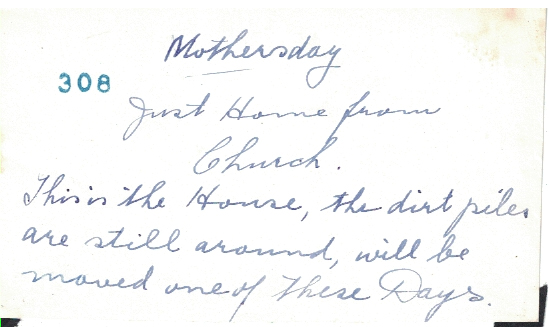 Mothersday
308
Just Home from
Church.
This is the House, the dirt piles
are still around, will be
moved one of These Days.